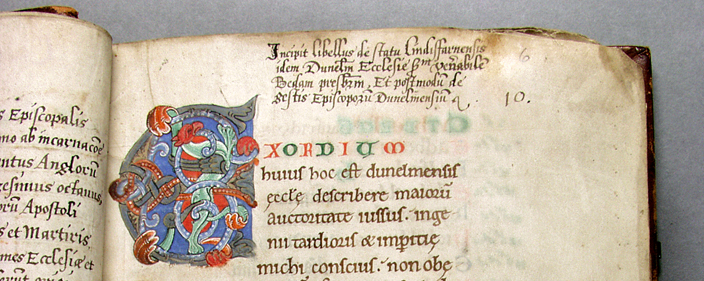 s Episcopalis
mo ab incarnacõe
entus Angloru᷉
esimus octauus,
orũ Apostoli
s et Martiris
mes Ecclesiæ et
Incipit libellus de statu Lindisfarnensis
idem Dunelm̃ Ecclesie s̃m veñabilẽ
Bedam presbr̃m, Et postmodũ de
Gestis Episcoporũ Dunelmensiũ
6
10.
EXORDIUM
huius hoc est dunelmensis
eccłe describere maiorũ
auctoritate iussus. inge
nii tardioris & imp̲itię
michi conscius. non obe